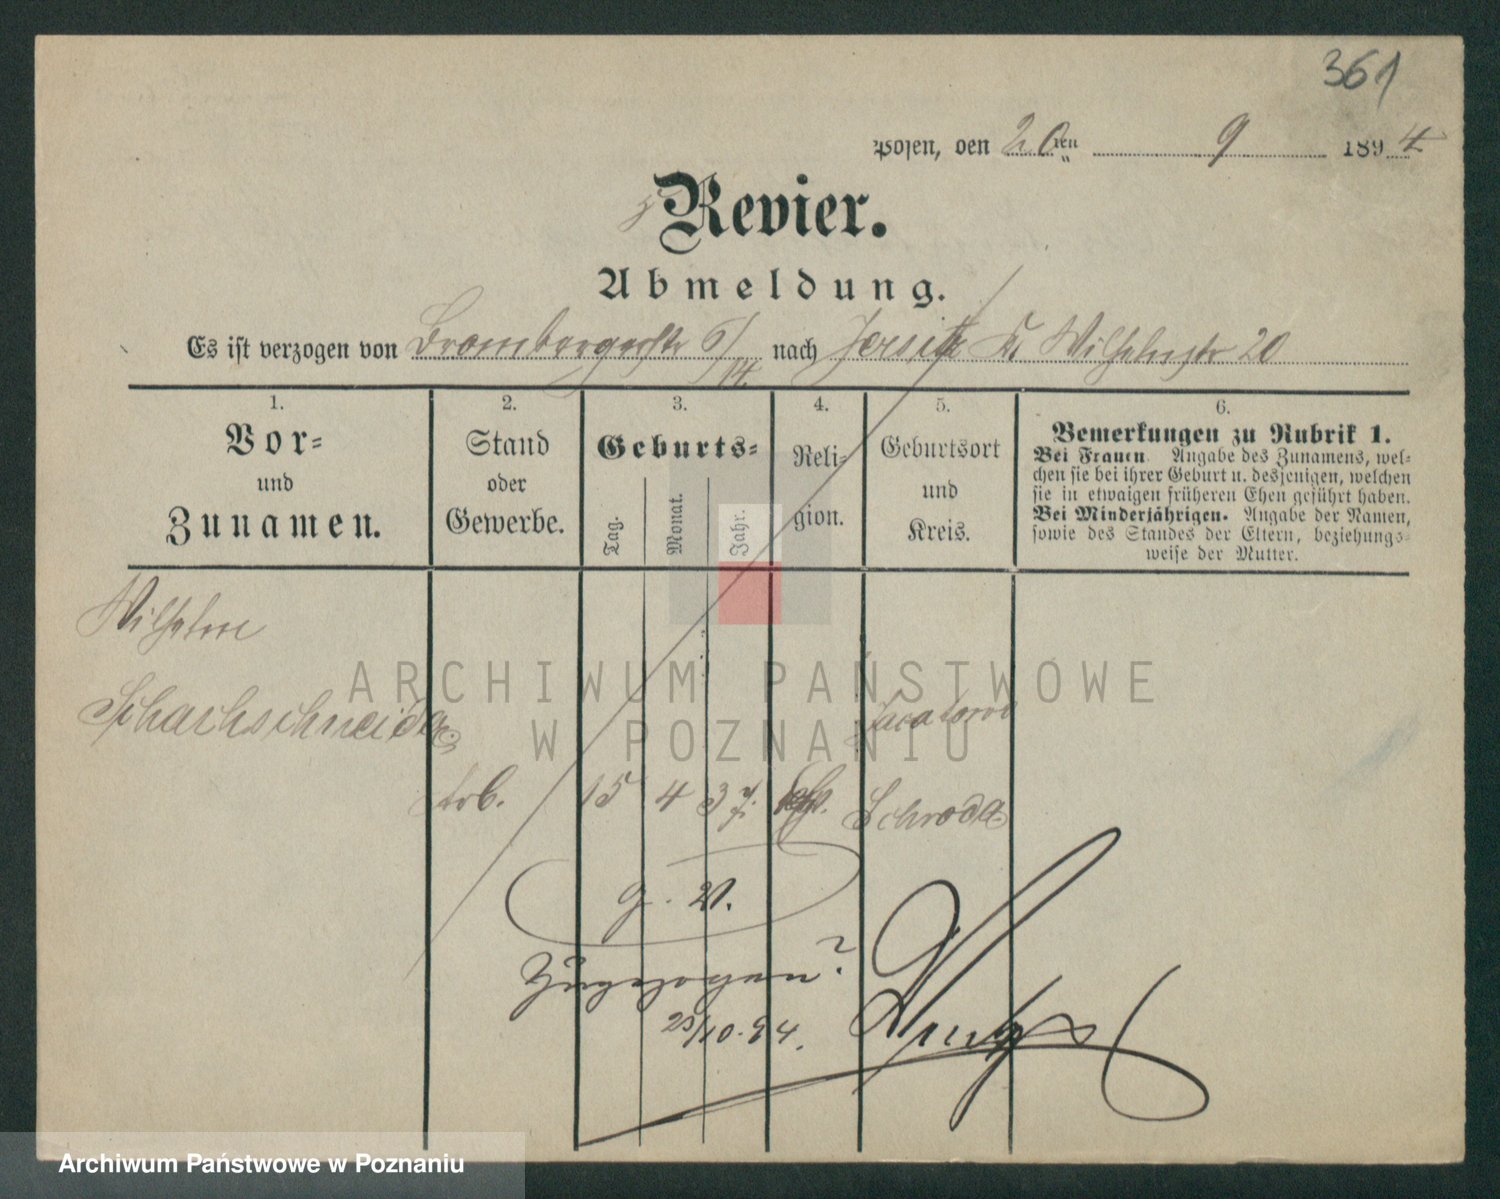 361
Posen, den 20ten 9 1894
Revier.
Abmeldung.
Es ist verzogen von Brombergerstr 6/ nach Jersitz K. Wilhelmstr 20
1.
Vor-
und
Zunamen.
2.
Stand
oder
Gewerbe.
3.
Geburts-
Tag.
Monat.
Jahr.
4.
Reli-
gion.
5.
Geburtsort
und
Kreis.
6.
Bemerkungen zu Rubrik 1.
Bei Frauen Angabe des Zunamens, wel-
chen sie bei ihrer Geburt u. desjenigen, welchen
sie in etwaigen früheren Ehen geführt haben.
Bei Minderjährigen. Angabe der Namen,
sowie des Standes der Eltern, beziehungs-
weise der Mutter.
Wilhelm
Schachschneider
Arb. 15 4 37. Schroda
g. W.
Zugezogen?
25/10.94.
ARCHIWUM PAŃSTWOWE
W POZNANIU
Archiwum Państwowe w Poznaniu